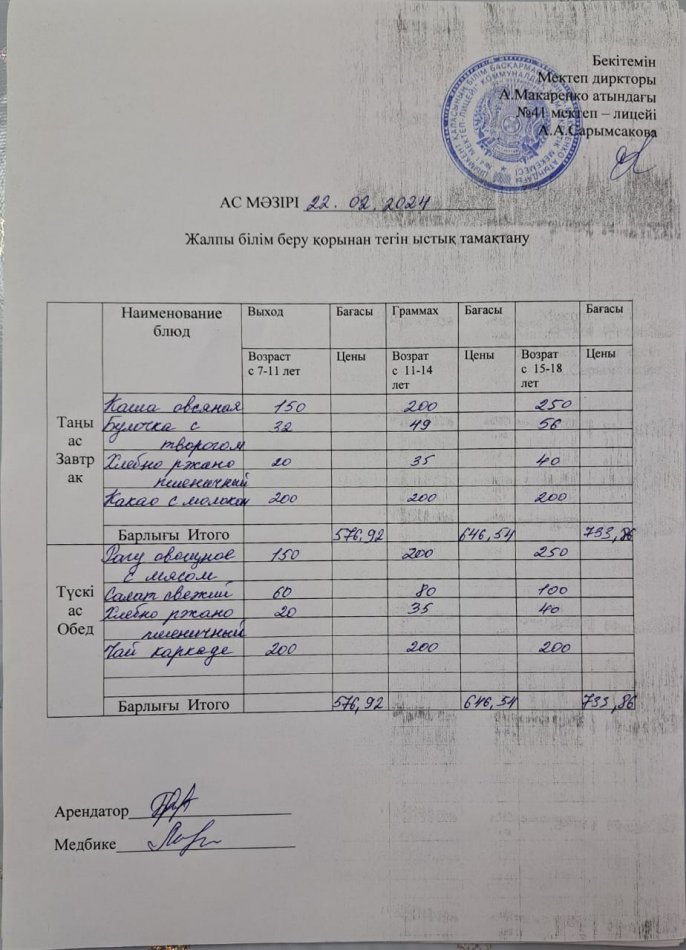 Бекітемін
Мектеп диркторы
А.Макаренко атындағы
№41 мектеп – лицейі
А.А.Сарымсакова
АС МӘЗІРІ 22.02.2024
Жалпы білім беру қорынан тегін ыстық тамақтану
Наименование блюд Выход Бағасы Граммах Бағасы Бағасы
Возраст с 7-11 лет Цены Возрат с 11-14 лет Цены Возрат с 15-18 лет Цены
Таңы ас Завтр ак
Каша овсяная 150 200 250
Булочка с творогом 32 49 56
Хлебно ржано пшеничный 20 35 40
Какао с молоком 200 200 200
Барлығы Итого 576,92 646,54 733,86
Түскі ас Обед
Рагу овощное с мясом 150 200 250
Салат свежий 60 80 100
Хлебно ржано пшеничный 20 35 40
Чай каркаде 200 200 200
Барлығы Итого 576,92 646,54 733,86
Арендатор
Медбике